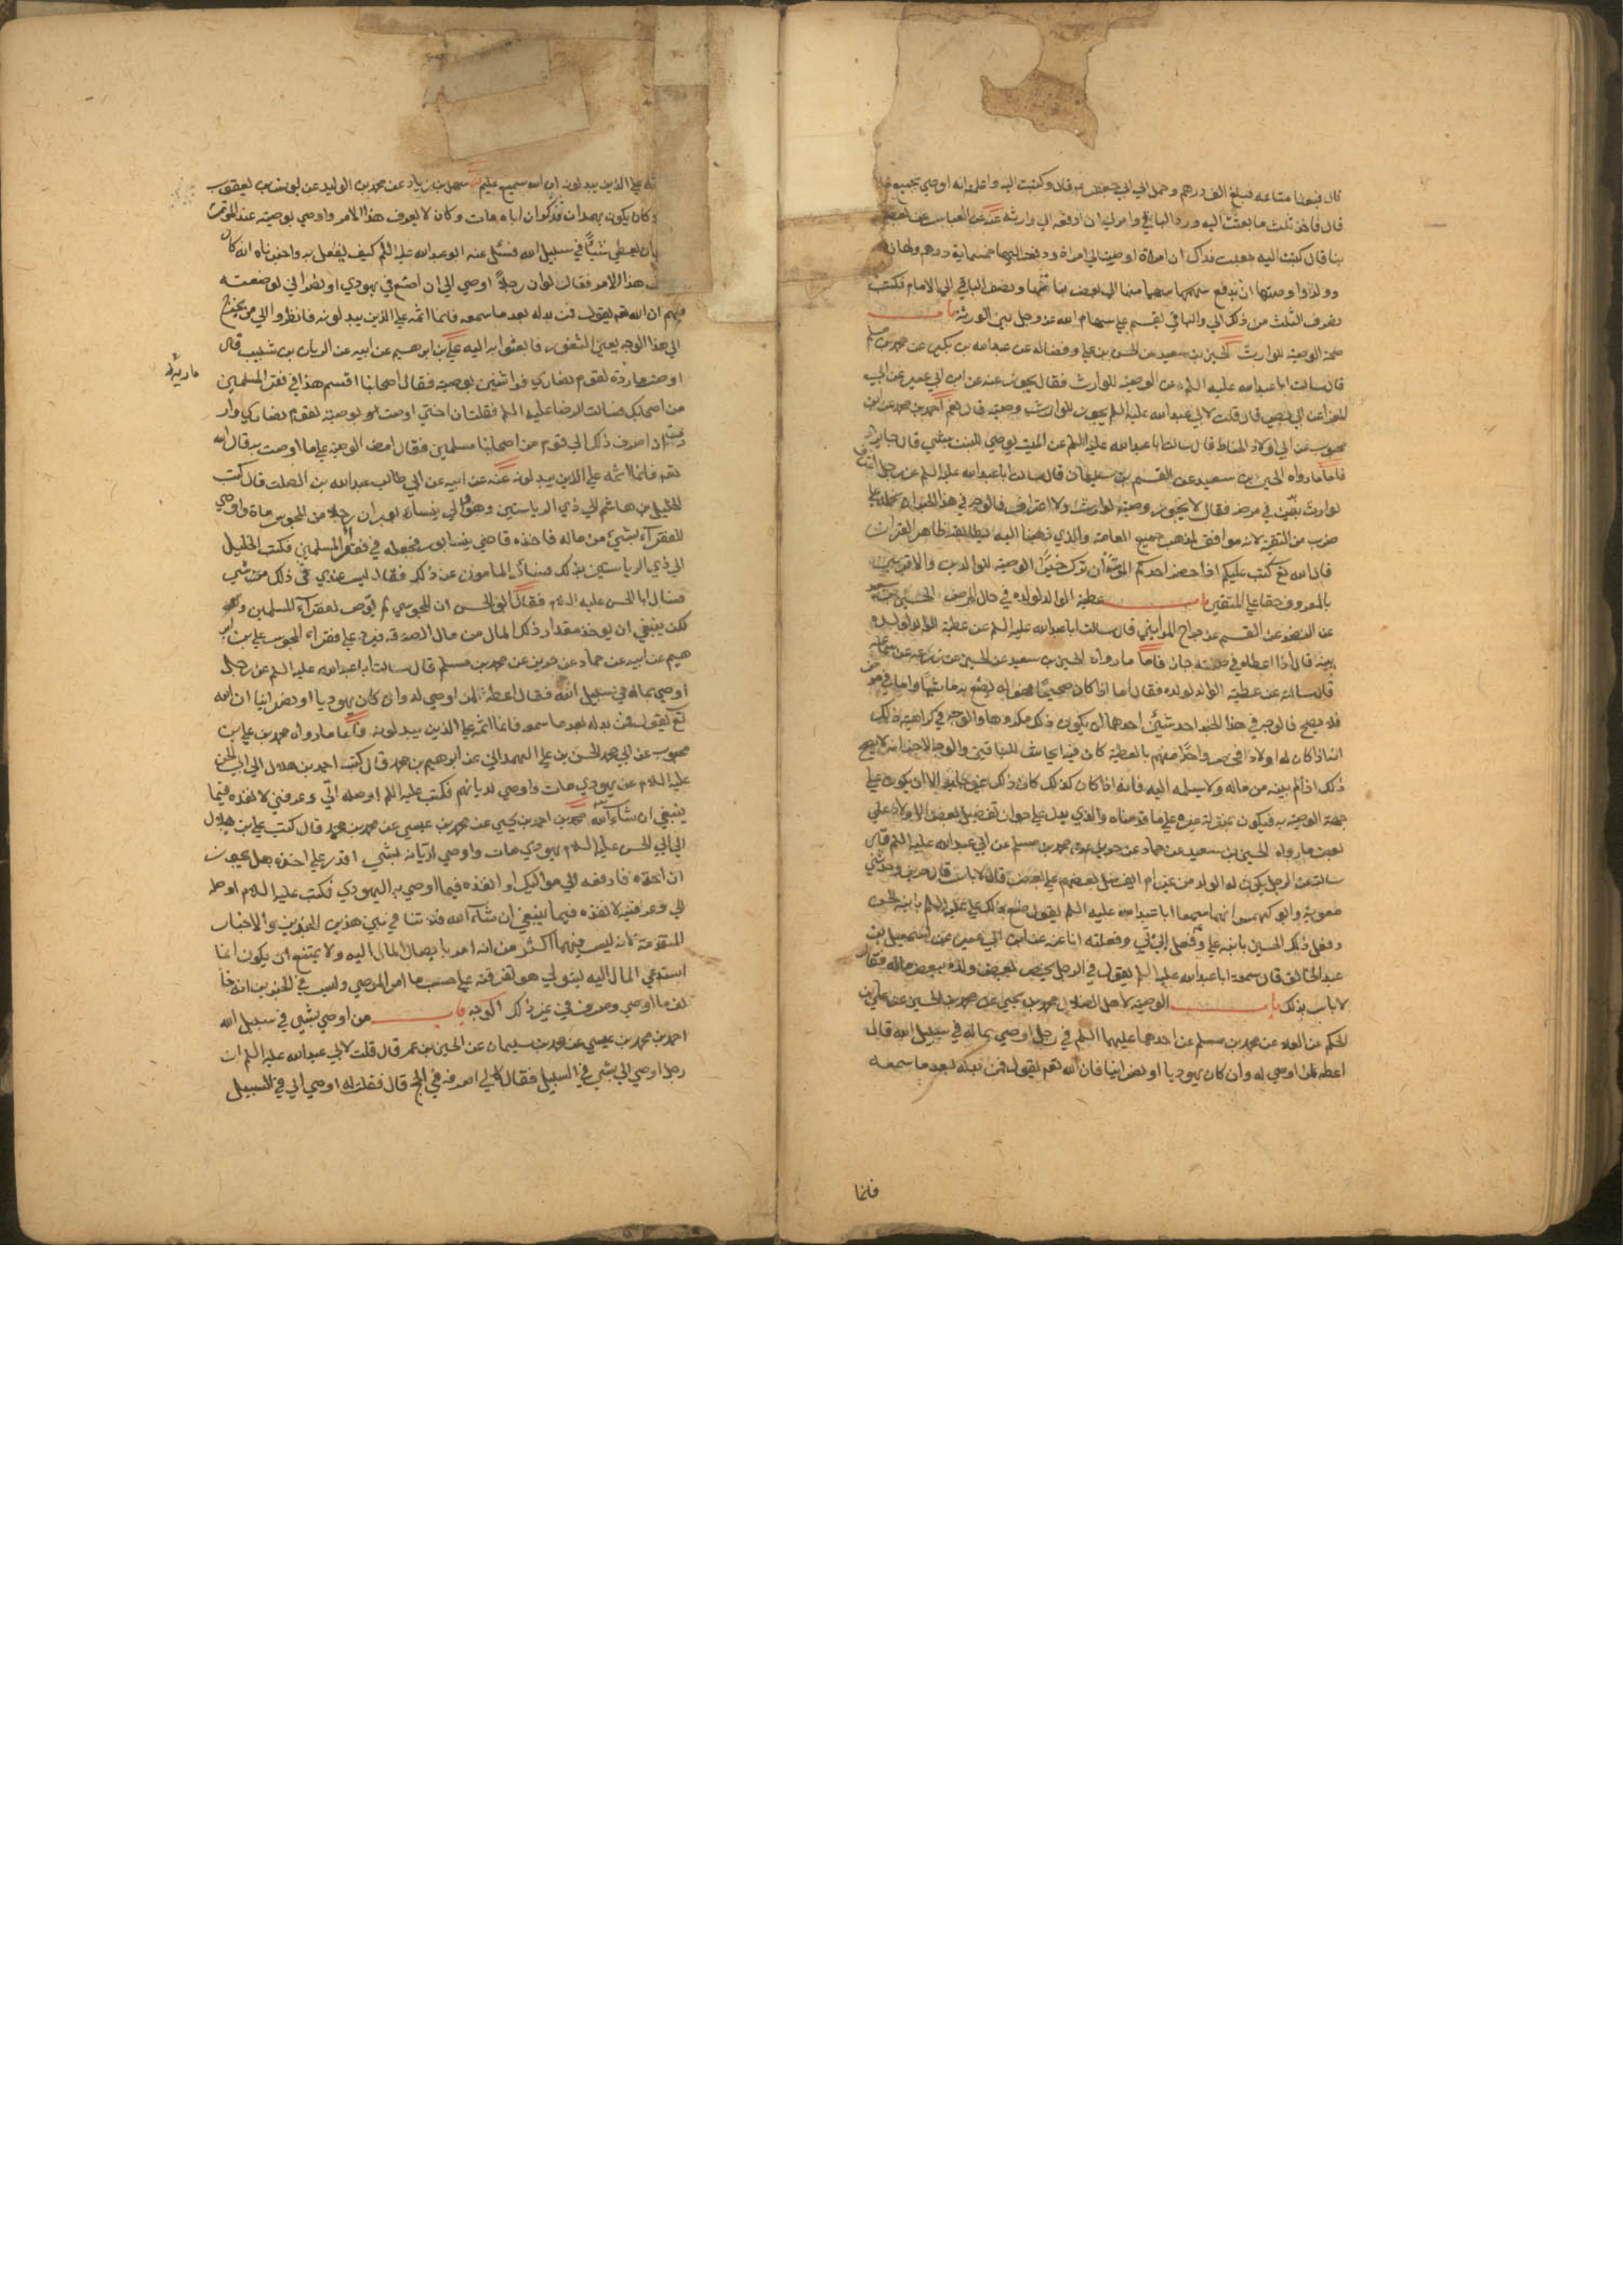 قال فبعنا متاعه فبلغ الف درهم وحمل الى ابي جعفر ع قال وكتبت اليه واعلمته انه اوصي بجميع ماله
قال فاخذ ثلث ما بعثت اليه ورد الباقي وامرني ان ادفعه الي وارثه عنه عن العباس عن بعض
بنا قال كتبت اليه جعلت فداك ان امراة اوصت الي امراة ودفعت اليها خمسماية درهم ولها
وولد واوصتها ان تدفع سهما منها الي بعض بناتها وتصرف الباقي الي الامام فكتب
تصرف الثلث من ذلك الي والباقي يقسم علي سهام الله عز وجل بين الورثة باب
صحة الوصية للوارث الحسين بن سعيد عن الحسن بن علي وفضالة عن عبدالله بن بكير عن محمد بن مسلم
قال سالت ابا عبد الله عليه السلم عن الوصية للوارث فقال يجوز عنه عن ابن ابي عمير عن ابي
المغرا عن ابي بصير قال قلت لابي عبد الله عليه السلم يجوز للوارث وصية قال نعم احمد بن محمد عن ابن
محبوب عن ابي ولاد الحناط قال سالت ابا عبدالله عليه السلم عن الميت يوصي للبنت بشي قال جايز
فاما ما رواه الحسين بن سعيد عن القسم بن سليمان قال سالت ابا عبدالله عليه السلم عن رجل اعترف
لوارث بدين في مرضه فقال لا يجوز وصية لوارث ولا اعتراف فالوجه في هذا الخبر ان نحمله علي
ضرب من التقية لانه موافق لمذهب جميع العامة والذي ذهبنا اليه يطابقه ظاهر القران
قال الله تع كتب عليكم اذا حضر احدكم الموت ان ترك خيرا الوصية للوالدين والاقربين
بالمعروف حقا علي المتقين باب عطية الوالد لولده في حال المرض الحسين بن سعيد
عن النضر عن القسم عن جراح المدايني قال سالت ابا عبدالله عليه السلم عن عطية الوالد لولده
بينه قال اذا اعطاه في صحته جاز فاما ما رواه الحسين بن سعيد عن الحسن عن زرعه عن سماعه
قال سالته عن عطية الوالد لولده فقال اما اذا كان صحيحا فهو له يصنع به ما شا واما في مرض
فلا يصلح فالوجه في هذا الخبر احد شيئين احدهما ان يكون ذلك مكروها والوجه في كراهية ذلك
انه اذا كان له اولاد فخص واحدا منهم بالعطية كان فيه ايحاش للباقين والوجه الاخر انه لا يصح
ذلك اذا لم يبنه من ماله ولا يسلمه اليه فانه اذا كان كذلك كان ذلك غير جايز الا ان يكون علي
جهة الوصية به فيكون بمنزلة غيره علي ما قدمناه والذي يدل علي جواز تفضيل بعض الاولاد علي
بعض ما رواه الحسين بن سعيد عن حماد عن حريز عن محمد بن مسلم عن ابي عبد الله عليه السلم قال
سالته عن الرجل يكون له الولد من غير ام ايفضل بعضهم علي بعض قال لا باس قال حريز وحدثني
معوية وابو كهمس انهما سمعا ابا عبدالله عليه السلم يقول صنع ذلك علي عليه السلم بابنه الحسن
وفعل ذلك الحسين بابنه علي وفعل ابي بي وفعلته انا عنه عن ابن ابي عمير عن اسمعيل بن
عبد الخالق قال سمعت ابا عبدالله عليه السلم يقول في الرجل يخص بعض ولده ببعض ماله فقال
لا باس بذلك باب الوصية لاهل الضلال محمد بن يحيي عن محمد بن الحسين عن علي بن
الحكم عن العلا عن محمد بن مسلم عن احدهما عليهما السلم في رجل اوصي بماله في سبيل الله قال
اعطه لمن اوصي له وان كان يهوديا او نصرانيا فان الله تعم يقول فمن بدله بعد ما سمعه
فانما
علي الذين يبدلونه ان الله سميع عليم سهل بن زياد عن محمد بن الوليد عن يونس بن يعقوب
كان يكون بهمدان فذكر ان اباه مات وكان لا يعرف هذا الامر واوصي بوصيته عند الموت
ان يعطي شيئا في سبيل الله فسئل عنه ابو عبدالله عليه السلم كيف يفعل به واخبرناه انه كان
هذا الامر فقال لو ان رجلا اوصي الي ان اضع في يهودي او نصراني لوضعته
فيهم ان الله تعم يقول فمن بدله بعد ما سمعه فانما اثمه علي الذين يبدلونه فانظروا الي من يخرج
الي هذا الوجه يعني الثغور فابعثوا به اليه علي بن ابراهيم عن ابيه عن الريان بن شبيب قال
اوصت ماردة لقوم نصاري فراشين بوصية فقال اصحابنا اقسم هذا في فقرا المسلمين
ماريه
من اصحابك فسالت الرضا عليه السلم فقلت ان اختي اوصت بوصية لقوم نصاري وار
دت ان اصرف ذلك الي قوم من اصحابنا مسلمين فقال امض الوصية علي ما اوصت به قال الله
تعم فانما اثمه علي الذين يبدلونه عنه عن ابيه عن ابي طالب عبدالله بن الصلت قال كتب
الخليل بن هاشم الي ذي الرياستين وهو والي نيسابور ان رجلا من المجوس مات واوصي
للفقرآء بشيء من ماله فاخذه قاضي نيسابور فجعله في فقرآء المسلمين فكتب الخليل
الي ذي الرياستين بذلك فسال المامون عن ذلك فقال ليس عندي في ذلك من شي
فسال ابا الحسن عليه السلام فقال ابو الحسن ان المجوسي لم يوص لفقرآء المسلمين و
لكن ينبغي ان يوخذ مقدار ذلك المال من مال الصدقه فيرد علي فقراء المجوس علي بن ابر
هيم عن ابيه عن حماد عن حريز عن محمد بن مسلم قال سالت ابا عبدالله عليه السلم عن رجل
اوصي بماله في سبيل الله فقال اعطه لمن اوصي له وان كان يهوديا او نصرانيا ان الله
تع يقول فمن بدله بعد ما سمعه فانما اثمه علي الذين يبدلونه فاما ما رواه محمد بن علي بن
محبوب عن ابي محمد الحسن بن علي الهمداني عن ابرهيم بن محمد قال كتب احمد بن هلال الي ابي الحسن
عليه السلام عن يهودي مات واوصي لديانهم فكتب عليه السلم اوصله الي وعرفني لانفذه فيما
ينبغي ان شاء الله محمد بن احمد بن يحيي عن محمد بن عيسي عن محمد بن محمد قال كتب علي بن بلال
الي ابي الحسن عليه السلام يهودي مات واوصي لديانه بشي اقدر علي اخذه هل يجوز
ان اخذه فادفعه الي مواليك او انفذه فيما اوصي به اليهودي فكتب عليه السلام اوصله
الي وعرفنيه لانفذه فيما ينبغي ان شآء الله فلا تنافي بين هذين الخبرين والاخبار
المتقدمة لانه ليس فيهما اكثر من انه امر بايصال المال اليه ولا يمتنع ان يكون انما
استدعي المال اليه ليتولي هو تفرقته علي حسب ما امر الموصي وليس في الخبرين انه خا
لف ما اوصي وصرف في غير ذلك الوجه باب من اوصي بشي في سبيل الله
احمد بن محمد بن عيسي عن محمد بن سليمان عن الحسين بن عمر قال قلت لابي عبدالله عليه السلم ان
رجل اوصي الي بشي في السبيل فقال لي اصرفه في الحج قال فقلت له اوصي الي في السبيل